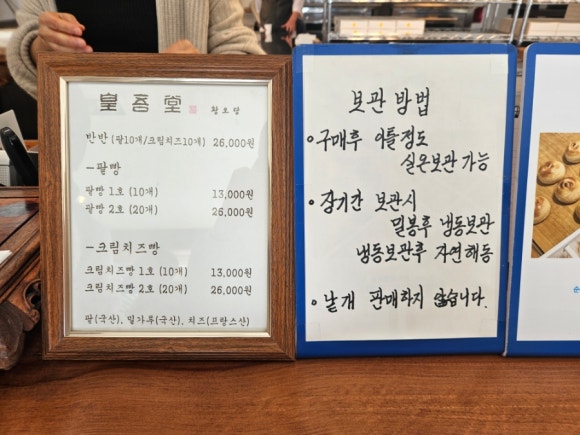 皇吾堂 황오당
반반 (팥10개/크림치즈10개) 26,000원
-팥빵
팥빵 1호 (10개) 13,000원
팥빵 2호 (20개) 26,000원
-크림치즈빵
크림치즈빵 1호 (10개) 13,000원
크림치즈빵 2호 (20개) 26,000원
팥(국산), 밀가루(국산), 치즈(프랑스산)
보관 방법
•구매후 이틀정도
실온보관 가능
•장기간 보관시
밀봉후 냉동보관
냉동보관후 자연해동
•낱개 판매하지 않습니다.